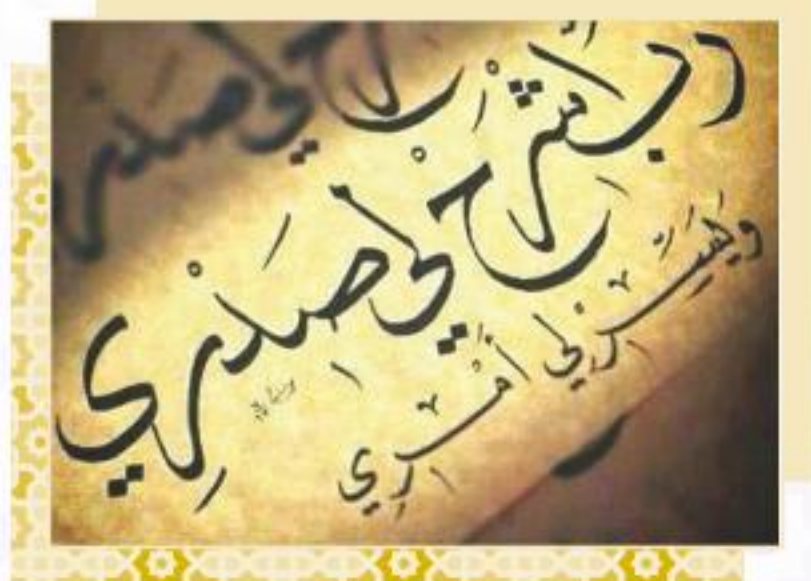 رب اشرح لي صدري
ويسر لي أمري